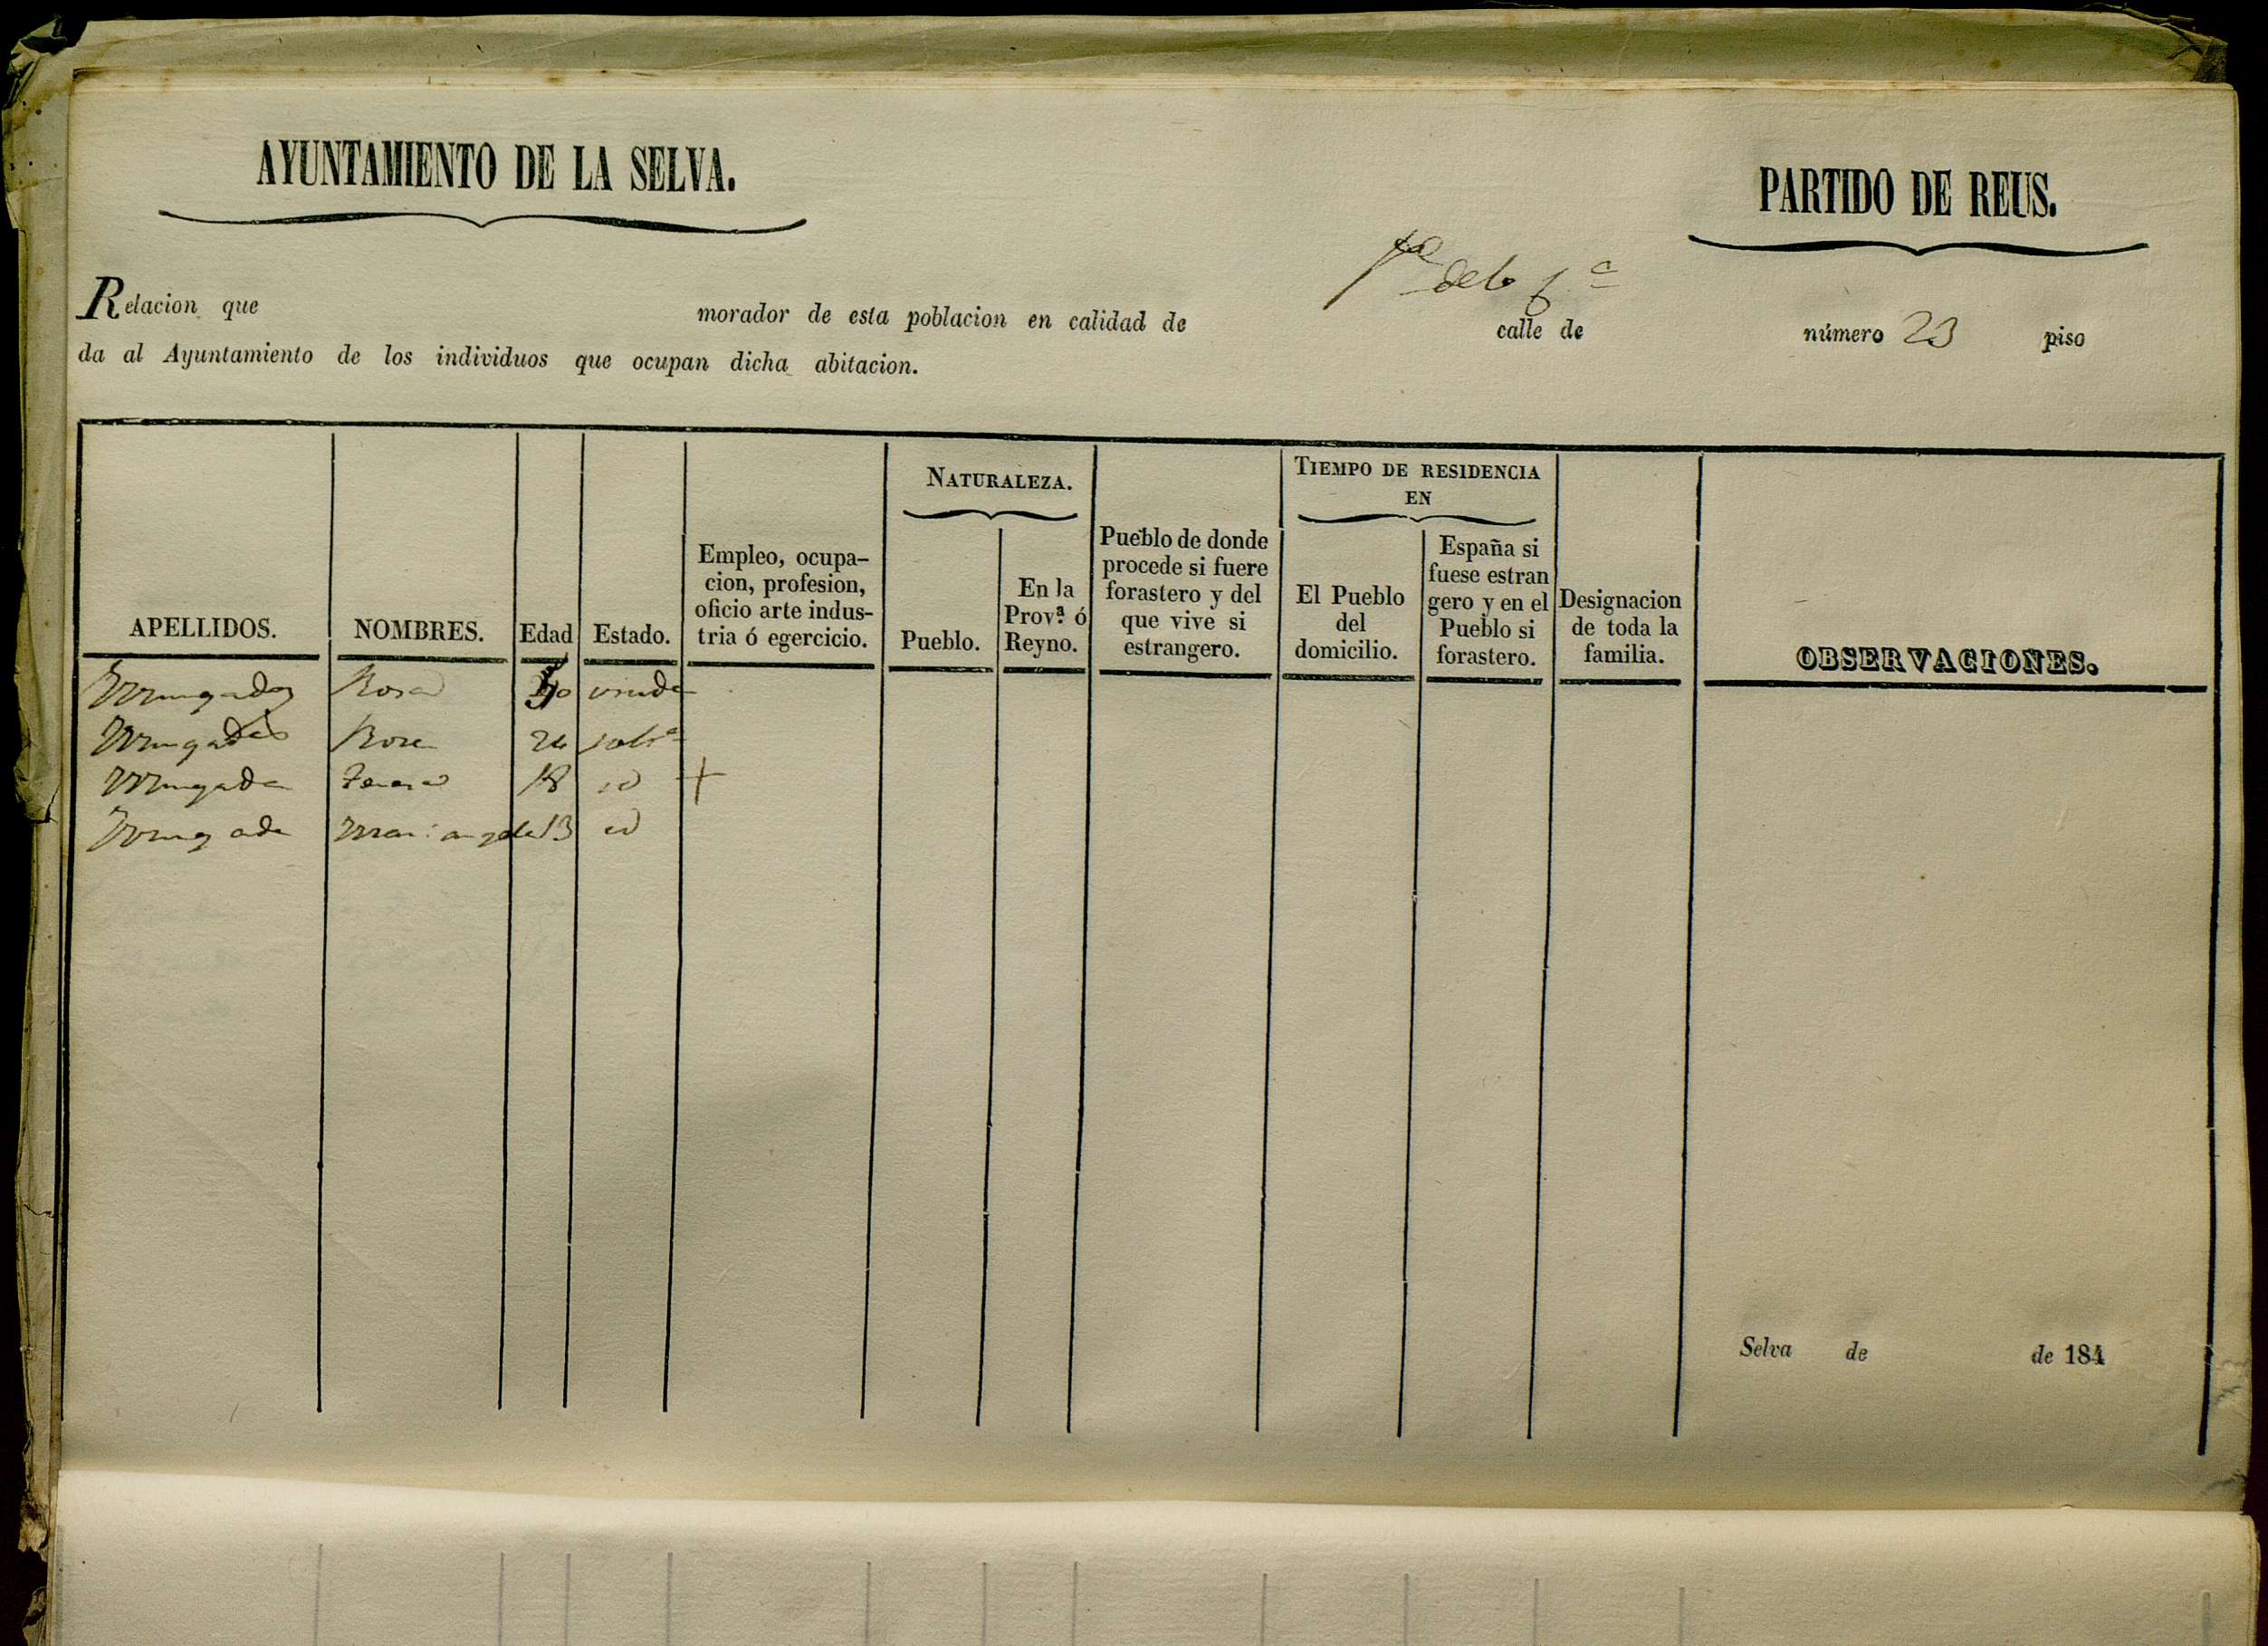 AYUNTAMIENTO DE LA SELVA.
PARTIDO DE REUS.
Relacion que morador de esta poblacion en calidad de calle de número 23 piso
da al Ayuntamiento de los individuos que ocupan dicha abitacion.
NATURALEZA.
TIEMPO DE RESIDENCIA
EN
APELLIDOS.
NOMBRES.
Edad
Estado.
Empleo, ocupa-
cion, profesion,
oficio arte indus-
tria ó egercicio.
Pueblo.
En la
Prov.ª ó
Reyno.
Pueblo de donde
procede si fuere
forastero y del
que vive si
estrangero.
El Pueblo
del
domicilio.
España si
fuese estran
gero y en el
Pueblo si
forastero.
Designacion
de toda la
familia.
OBSERVACIONES.
Rosa viuda
Rosa 24 solt.ª
Mungada Teresa 18 id +
Mungada Mariangela 13 id
Selva de de 184